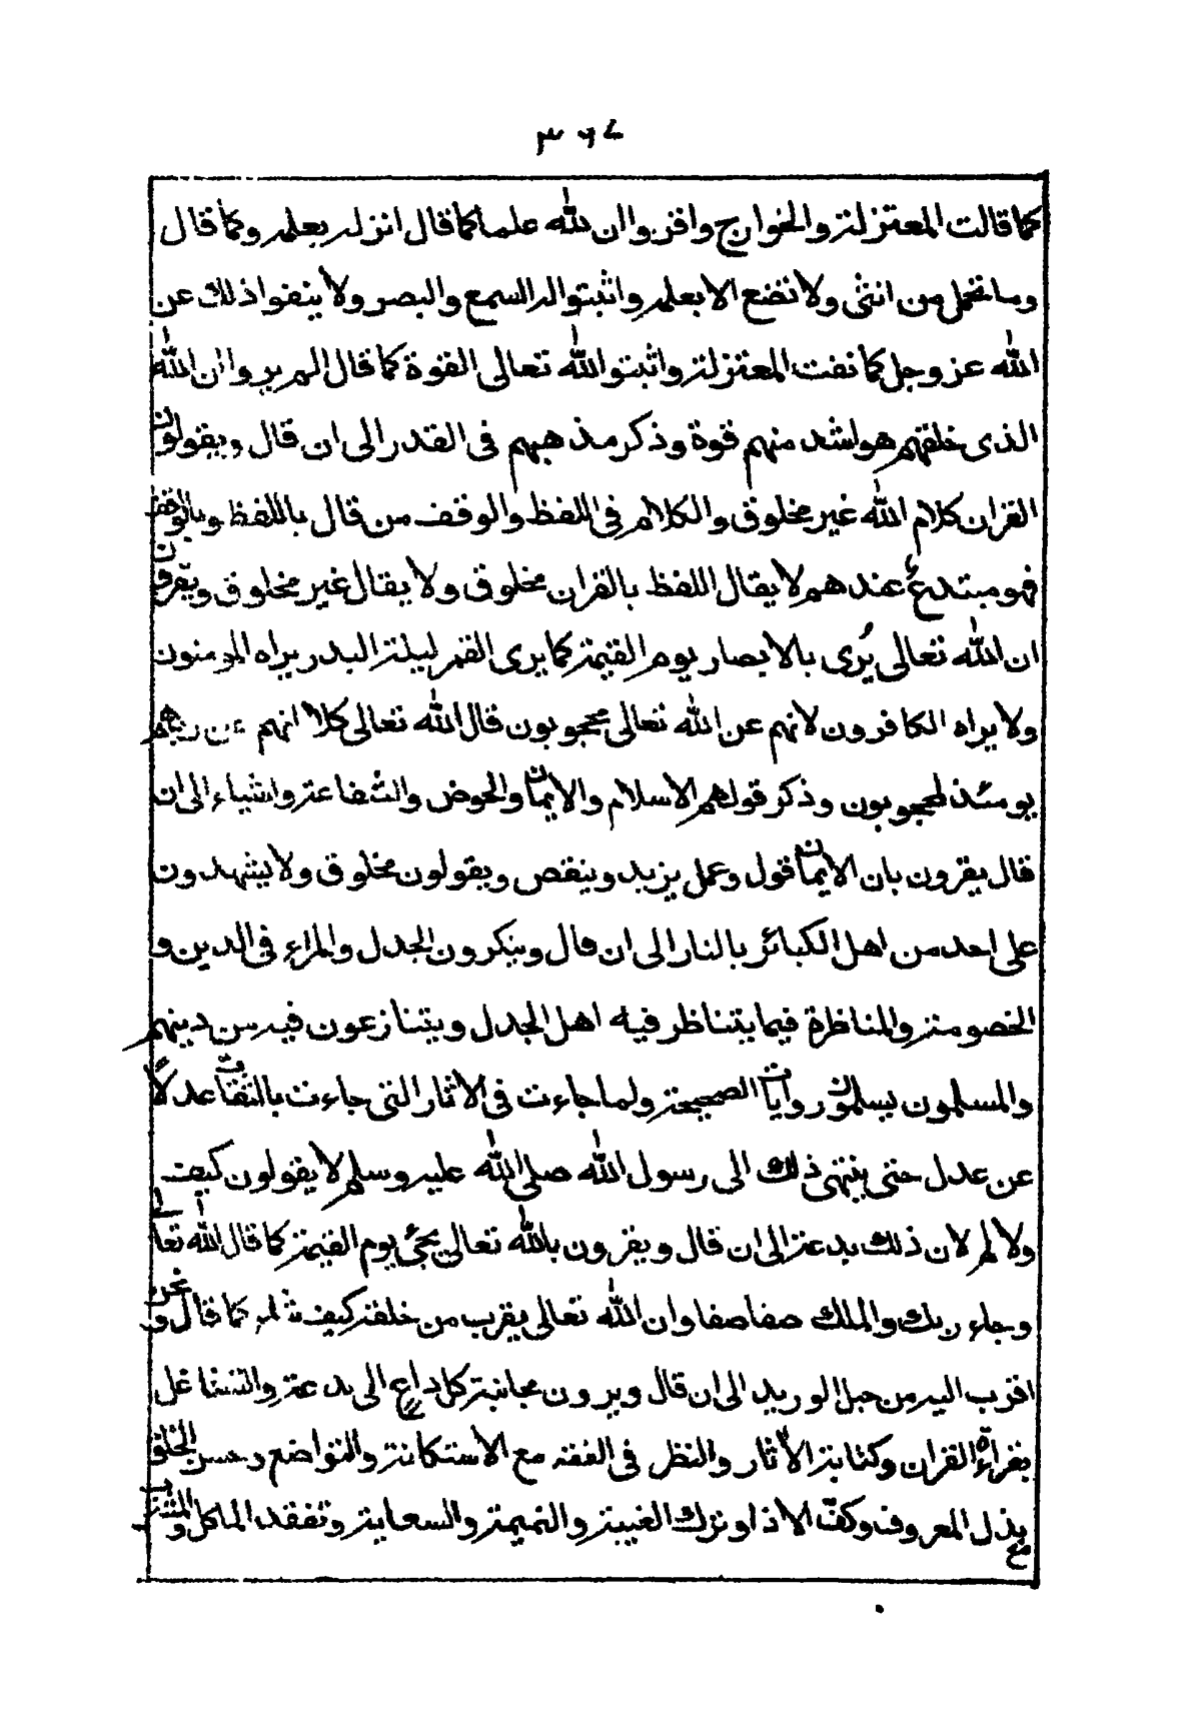 ٣٦٤
كما قالت المعتزلة والخوارج واقروا ان لله علما كما قال انزله بعلمه وكما قال
وما تحمل من انثى ولا تضع الا بعلمه واثبتوا له السمع والبصر ولا ينفوا ذلك عن
الله عز وجل كما نفت المعتزلة واثبتوا لله تعالى القوة كما قال الم يروا ان الله
الذى خلقهم هو اشد منهم قوة وذكر مذهبهم فى القدر الى ان قال ويقولون
القران كلام الله غير مخلوق والكلام فى اللفظ والوقف من قال باللفظ وبالوقف
فهو مبتدع عندهم لا يقال اللفظ بالقران مخلوق ولا يقال غير مخلوق ويقرون
ان الله تعالى يُرى بالابصار يوم القيمة كما يرى القمر ليلة البدر يراه المومنون
ولا يراه الكافرون لانهم عن الله تعالى محجوبون قال الله تعالى كلا انهم عن ربهم
يومئذ لمحجوبون وذكر قولهم الاسلام والايمان والحوض والشفاعة واشياء الى ان
قال يقرون بان الايمان قول وعمل يزيد وينقص ويقولون مخلوق ولا يشهدون
على احد من اهل الكبائر بالنار الى ان قال وينكرون الجدل والمراء فى الدين و
الخصومة والمناظرة فيما يتناظر فيه اهل الجدل ويتنازعون فيه من دينهم
والمسلمون يسلمون روايات الصحيحة ولما جاءت فى الاثار التى جاءت بالثقات عدلاً
عن عدل حتى ينتهى ذلك الى رسول الله صلى الله عليه وسلم لا يقولون كيف
ولا لم لان ذلك بدعة الى ان قال ويقرون بالله تعالى يجئ يوم القيمة كما قال الله تعالى
وجاء ربك والملك صفا صفا وان الله تعالى يقرب من خلقه كيف شاء كما قال ونحن
اقرب اليه من حبل الوريد الى ان قال ويرون مجانبة كل داعٍ الى بدعة والتشاغل
بقراءة القران وكتابة الآثار والنظر فى الفقه مع الاستكانة والتواضع وحسن الخلق
مع بذل المعروف وكفّ الاذا وترك الغيبة والنميمة والسعاية وتفقد الماكل والمشرب